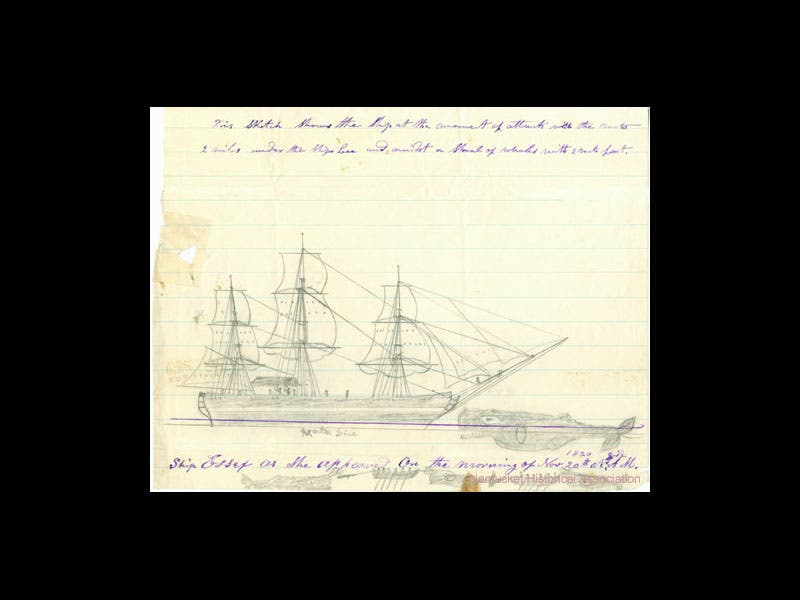 This Sketch Shows the Ship at the moment of attack with the boats
2 miles under the Ships lee and amidst a Shoal of whales with 2 boats fast.
Water Line
Ship Essex as She appeared On the morning of Nov 20th 1820 A.M.
Nantucket Historical Association